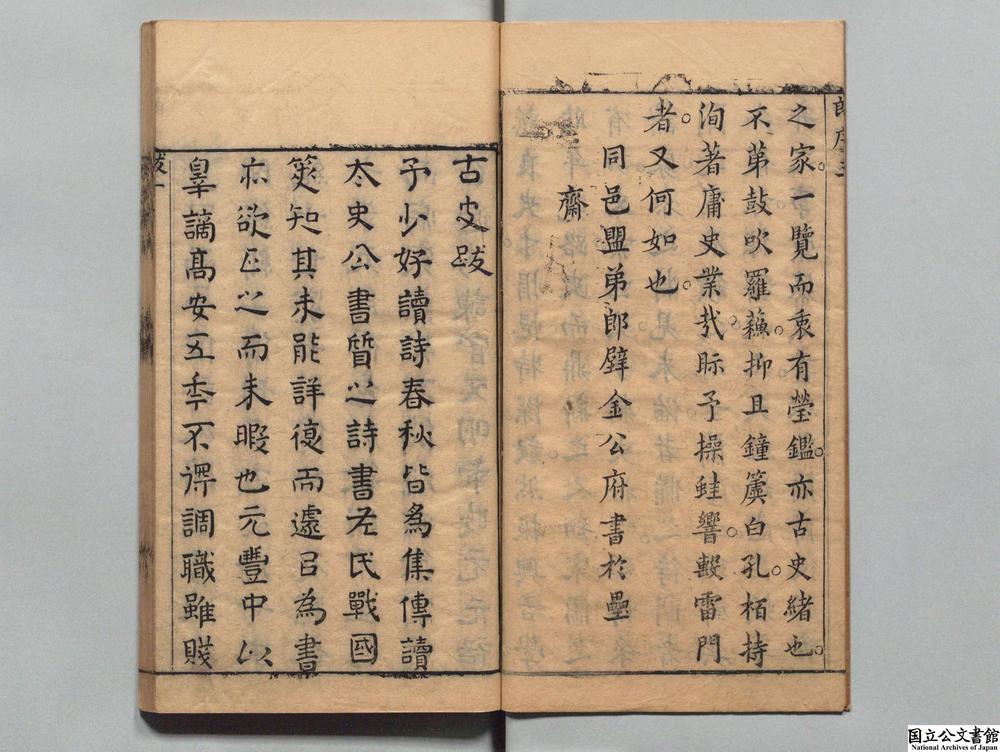 之家一覽而衷有瑩鑑亦古史緒也
不苐鼓吹羅蘓抑且鐘簴白孔栢持
洵著庸史業㢤眎予操蛙響毄雷門
者又何如也
同邑盟弟郎壁金公府書於壘
齋
古史跋
予少好讀詩春秋皆為集傳讀
太史公書質之詩書左氏戰國
筴知其未能詳復而遽㠯為書
亦欲正之而未暇也元豐中以
辠謫高安五秊不得調職雖賤
跋一
国立公文書館
National Archives of Japan